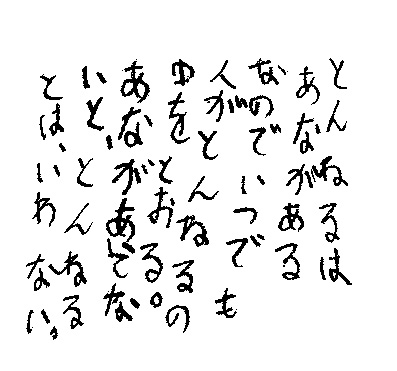 とんねるは
あながある
なのでいつでも
人がとんねるの
中をとおる。
あながあいてな
いと、とんねる
とは、いわない。